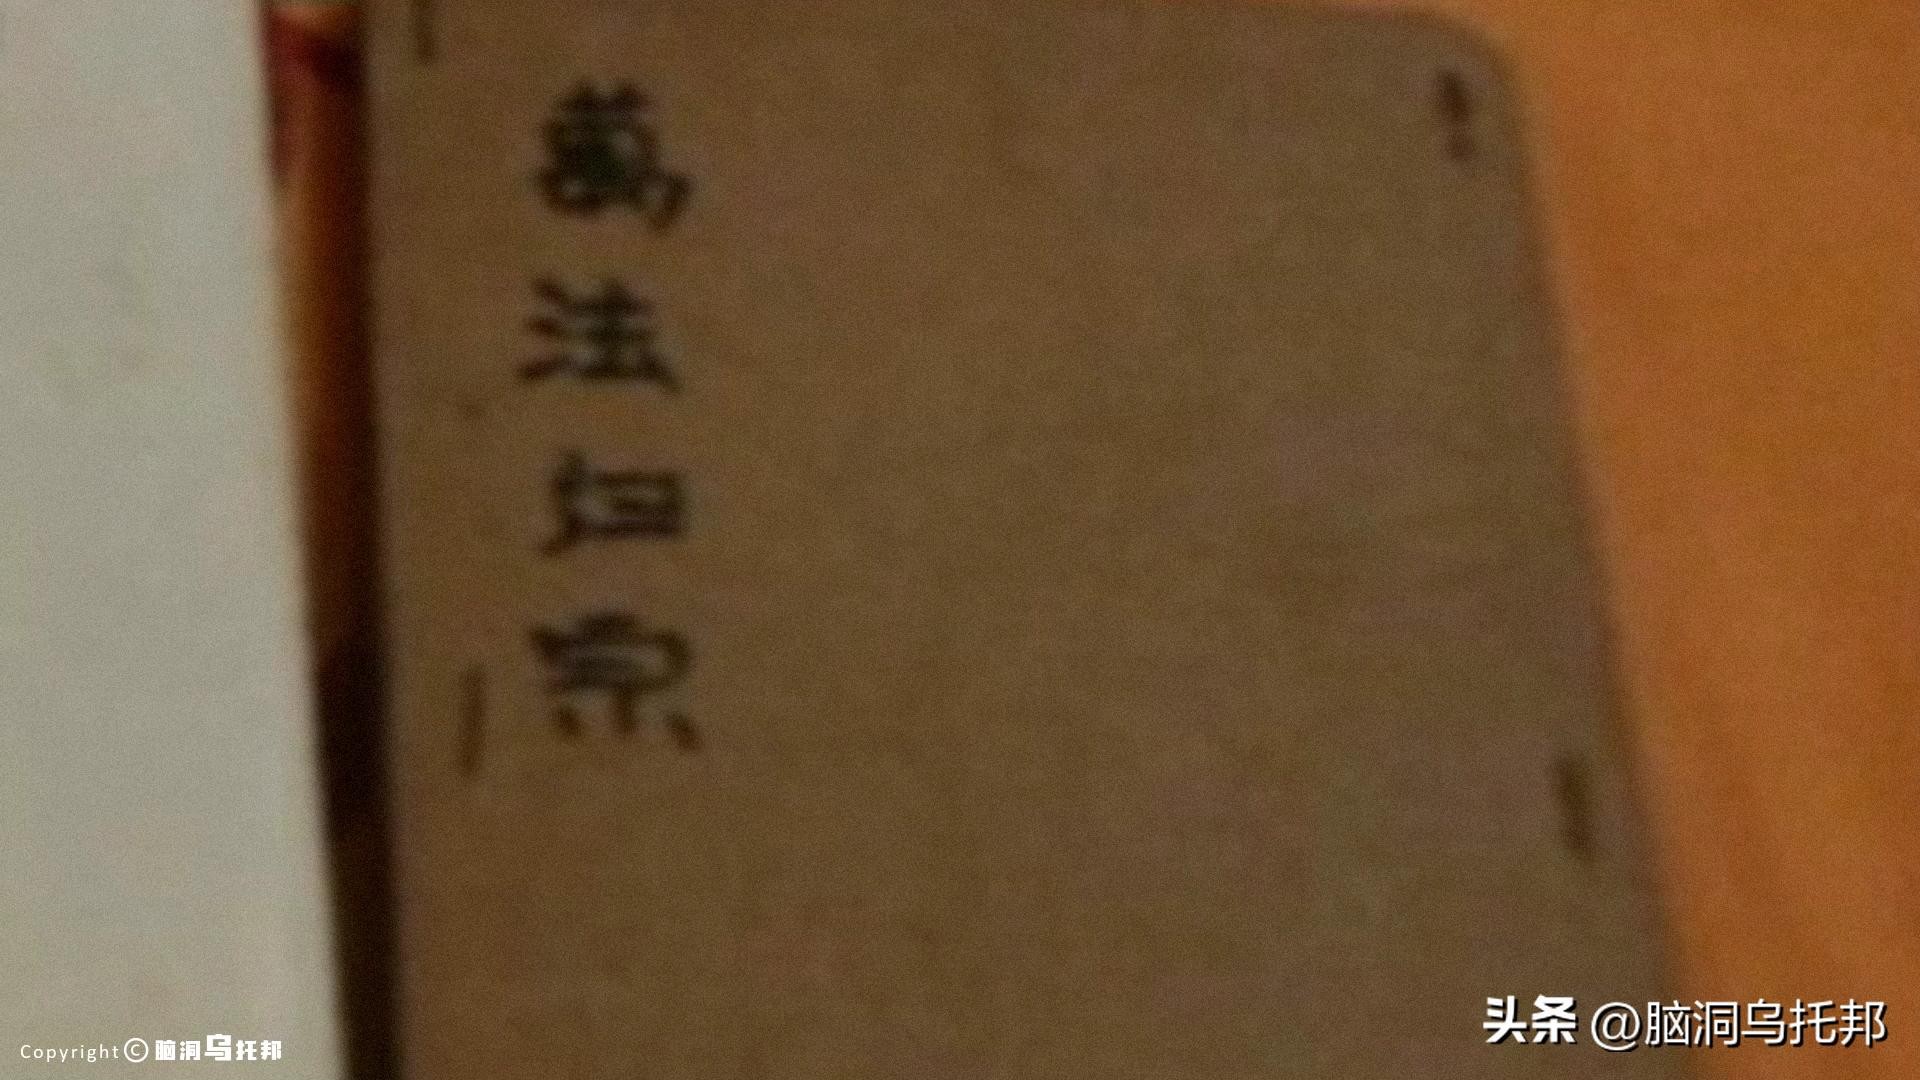 萬法歸宗
头条 @脑洞乌托邦
Copyright © 脑洞乌托邦